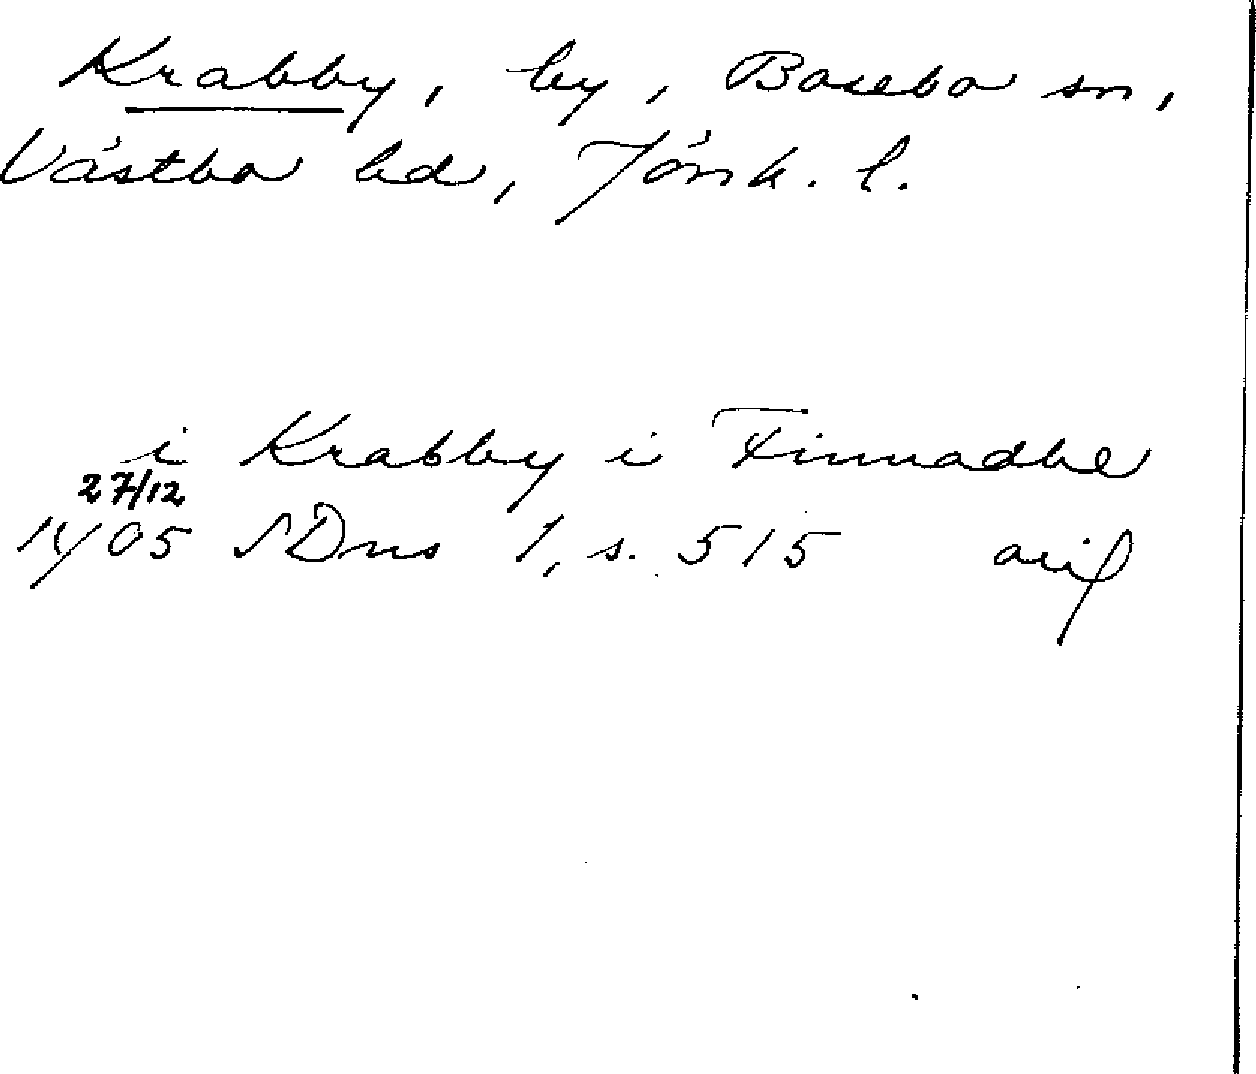 Krabby, by, Bosebo sn,
Västbo hd, Jönk. l.
i Krabby i Finnadhe
27/12
1405 SDns 1, s. 515